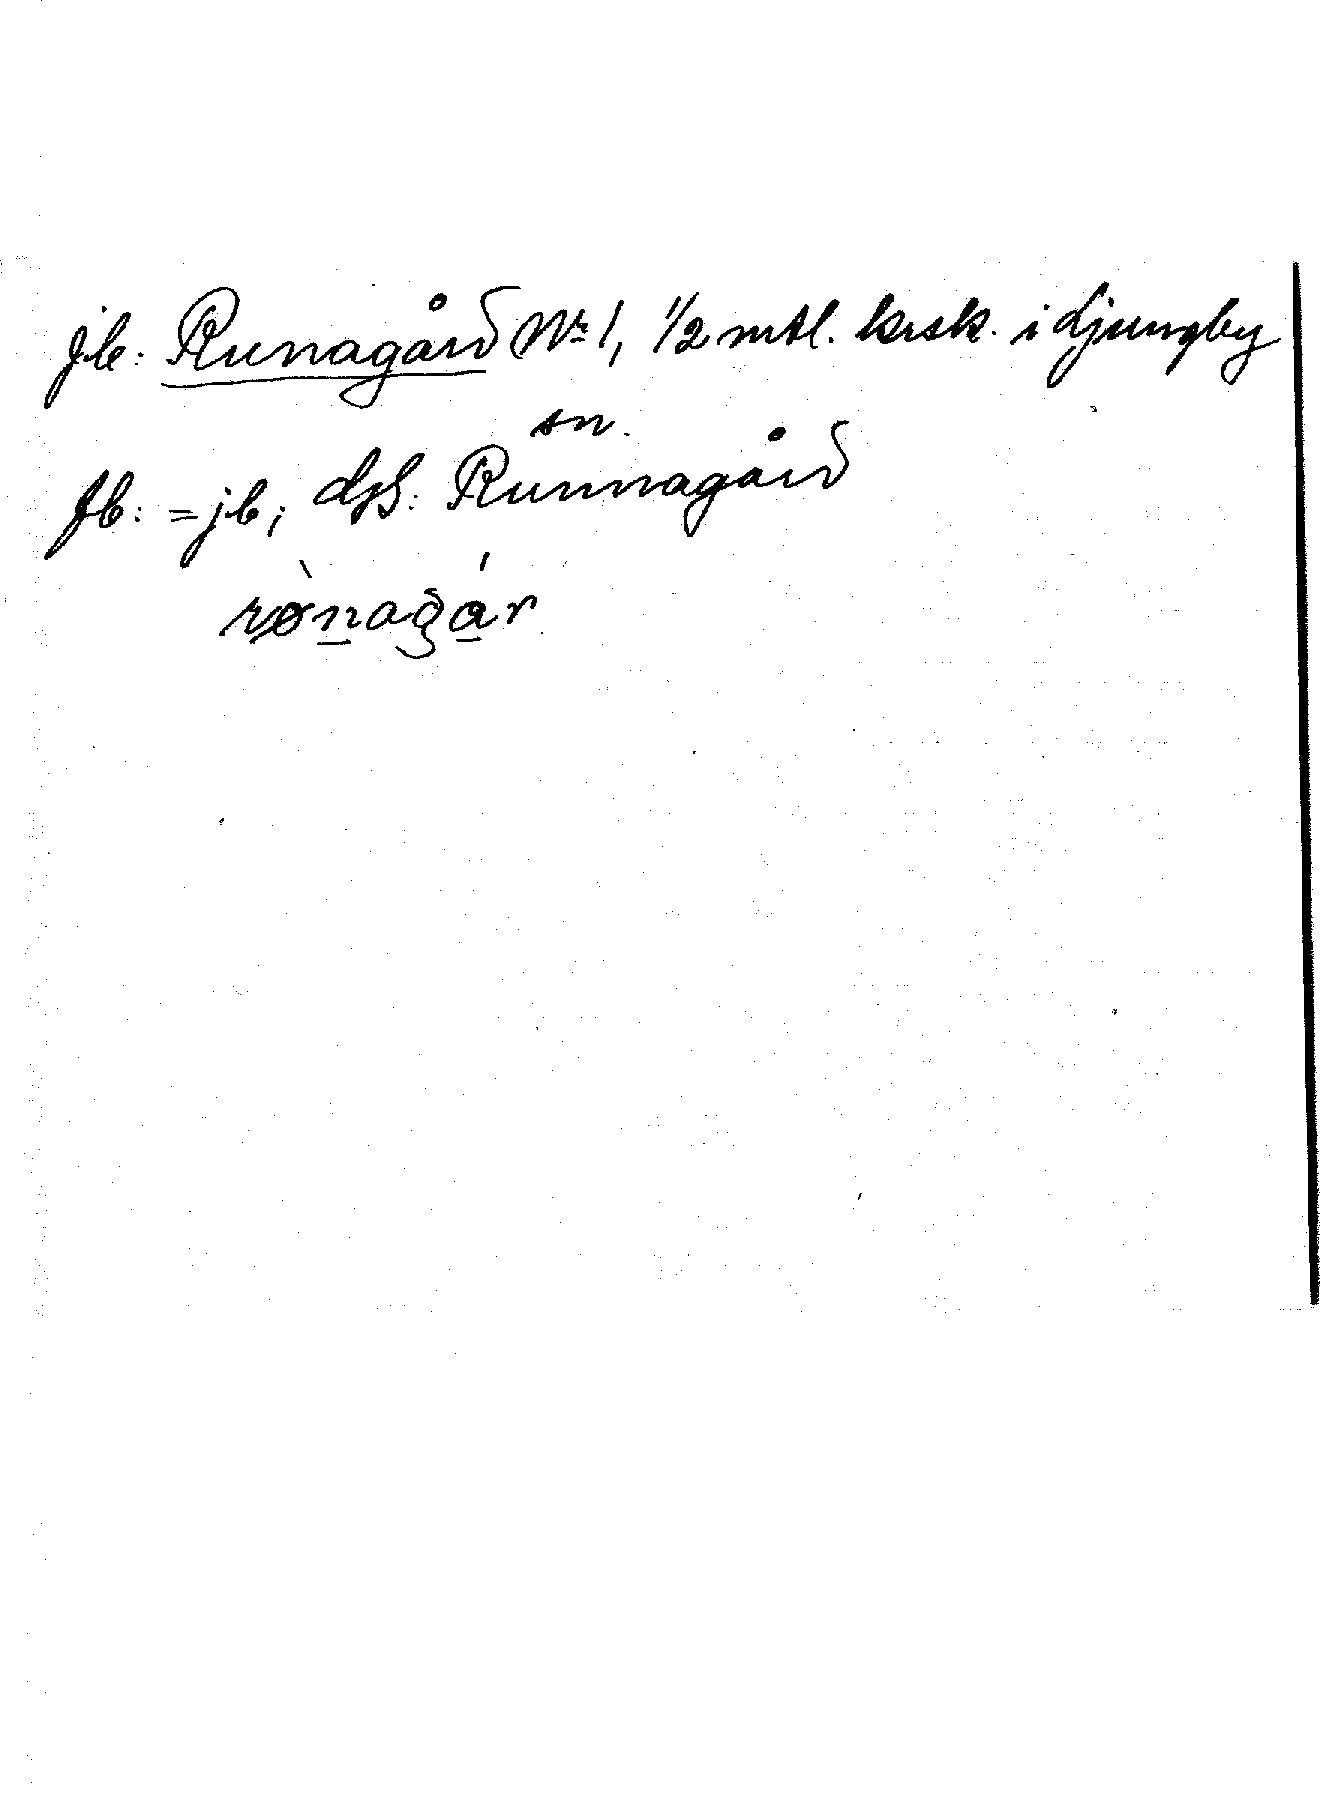 jb: Runagård Nr 1, 1/2 mtl. krsk. i Ljungby
sn.
fb: = jb; dfs: Runnagård
rònagár